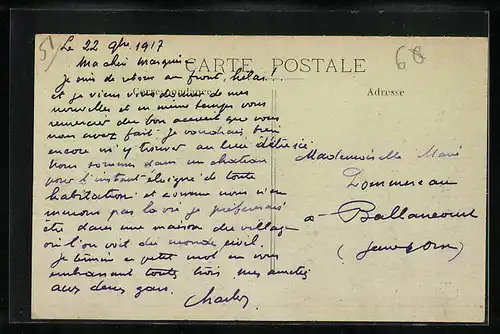 51
68
CARTE POSTALE
Correspondance
Adresse
Le 22 9bre 1917
Ma chère
Je suis de retour au front, hélas!
et je viens vous donner de mes
nouvelles et en même temps vous
remercier du bon accueil que vous
nous avez fait. je voudrais bien
encore m'y trouver au lieu d'être ici
Nous sommes dans un château
pour l'instant éloigné de toute
habitation et comme nous n'en
menons pas la vie je préférerais
être dans une maison du village
où l'on voit du monde civil.
Je termine ce petit mot en vous
embrassant toutes trois mes amitiés
aux deux gars.
Charles
Mademoiselle Marie
Dommereau
à Ballancourt
(Seine et Oise)